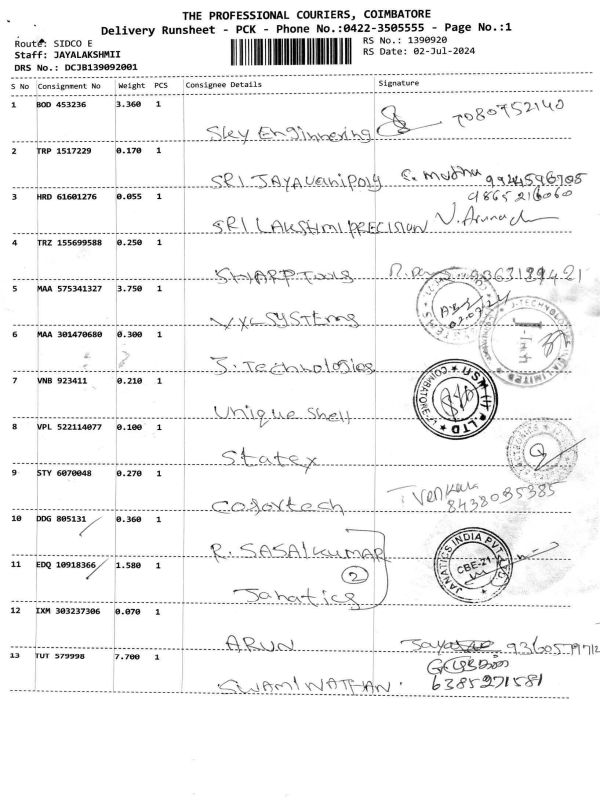 THE PROFESSIONAL COURIERS, COIMBATORE
Delivery Runsheet - PCK - Phone No.:0422-3505555 - Page No.:1
Route: SIDCO E
RS No.: 1390920
Staff: JAYALAKSHMII
RS Date: 02-Jul-2024
DRS No.: DCJB139092001
S No Consignment No Weight PCS Consignee Details Signature
1 BOD 453236 3.360 1
Sky Enginnering 7080752140
2 TRP 1517229 0.170 1
SRI JAYAVANIPOLY S. Muthu 9944596708
3 HRD 61601276 0.055 1
9865216060
SRI LAKSHMI PRECISION
4 TRZ 155699588 0.250 1
SHARP Tools
5 MAA 575341327 3.750 1
VXL SYSTEMS
6 MAA 301470680 0.300 1
J. Technologies
7 VNB 923411 0.210 1
Unique Shell
USM HT P.LTD COIMBATORE
8 VPL 522114077 0.100 1
Statex
9 STY 6070048 0.270 1
8438035385
10 DDG 805131 0.360 1
R. SASAIKUMAR
11 EDQ 10918366 1.580 1
2
Janatics
JANATICS INDIA PVT
CBE-21
12 IXM 303237306 0.070 1
ARUN
13 TUT 579998 7.700 1
SWAMINATHAN.
6385271581